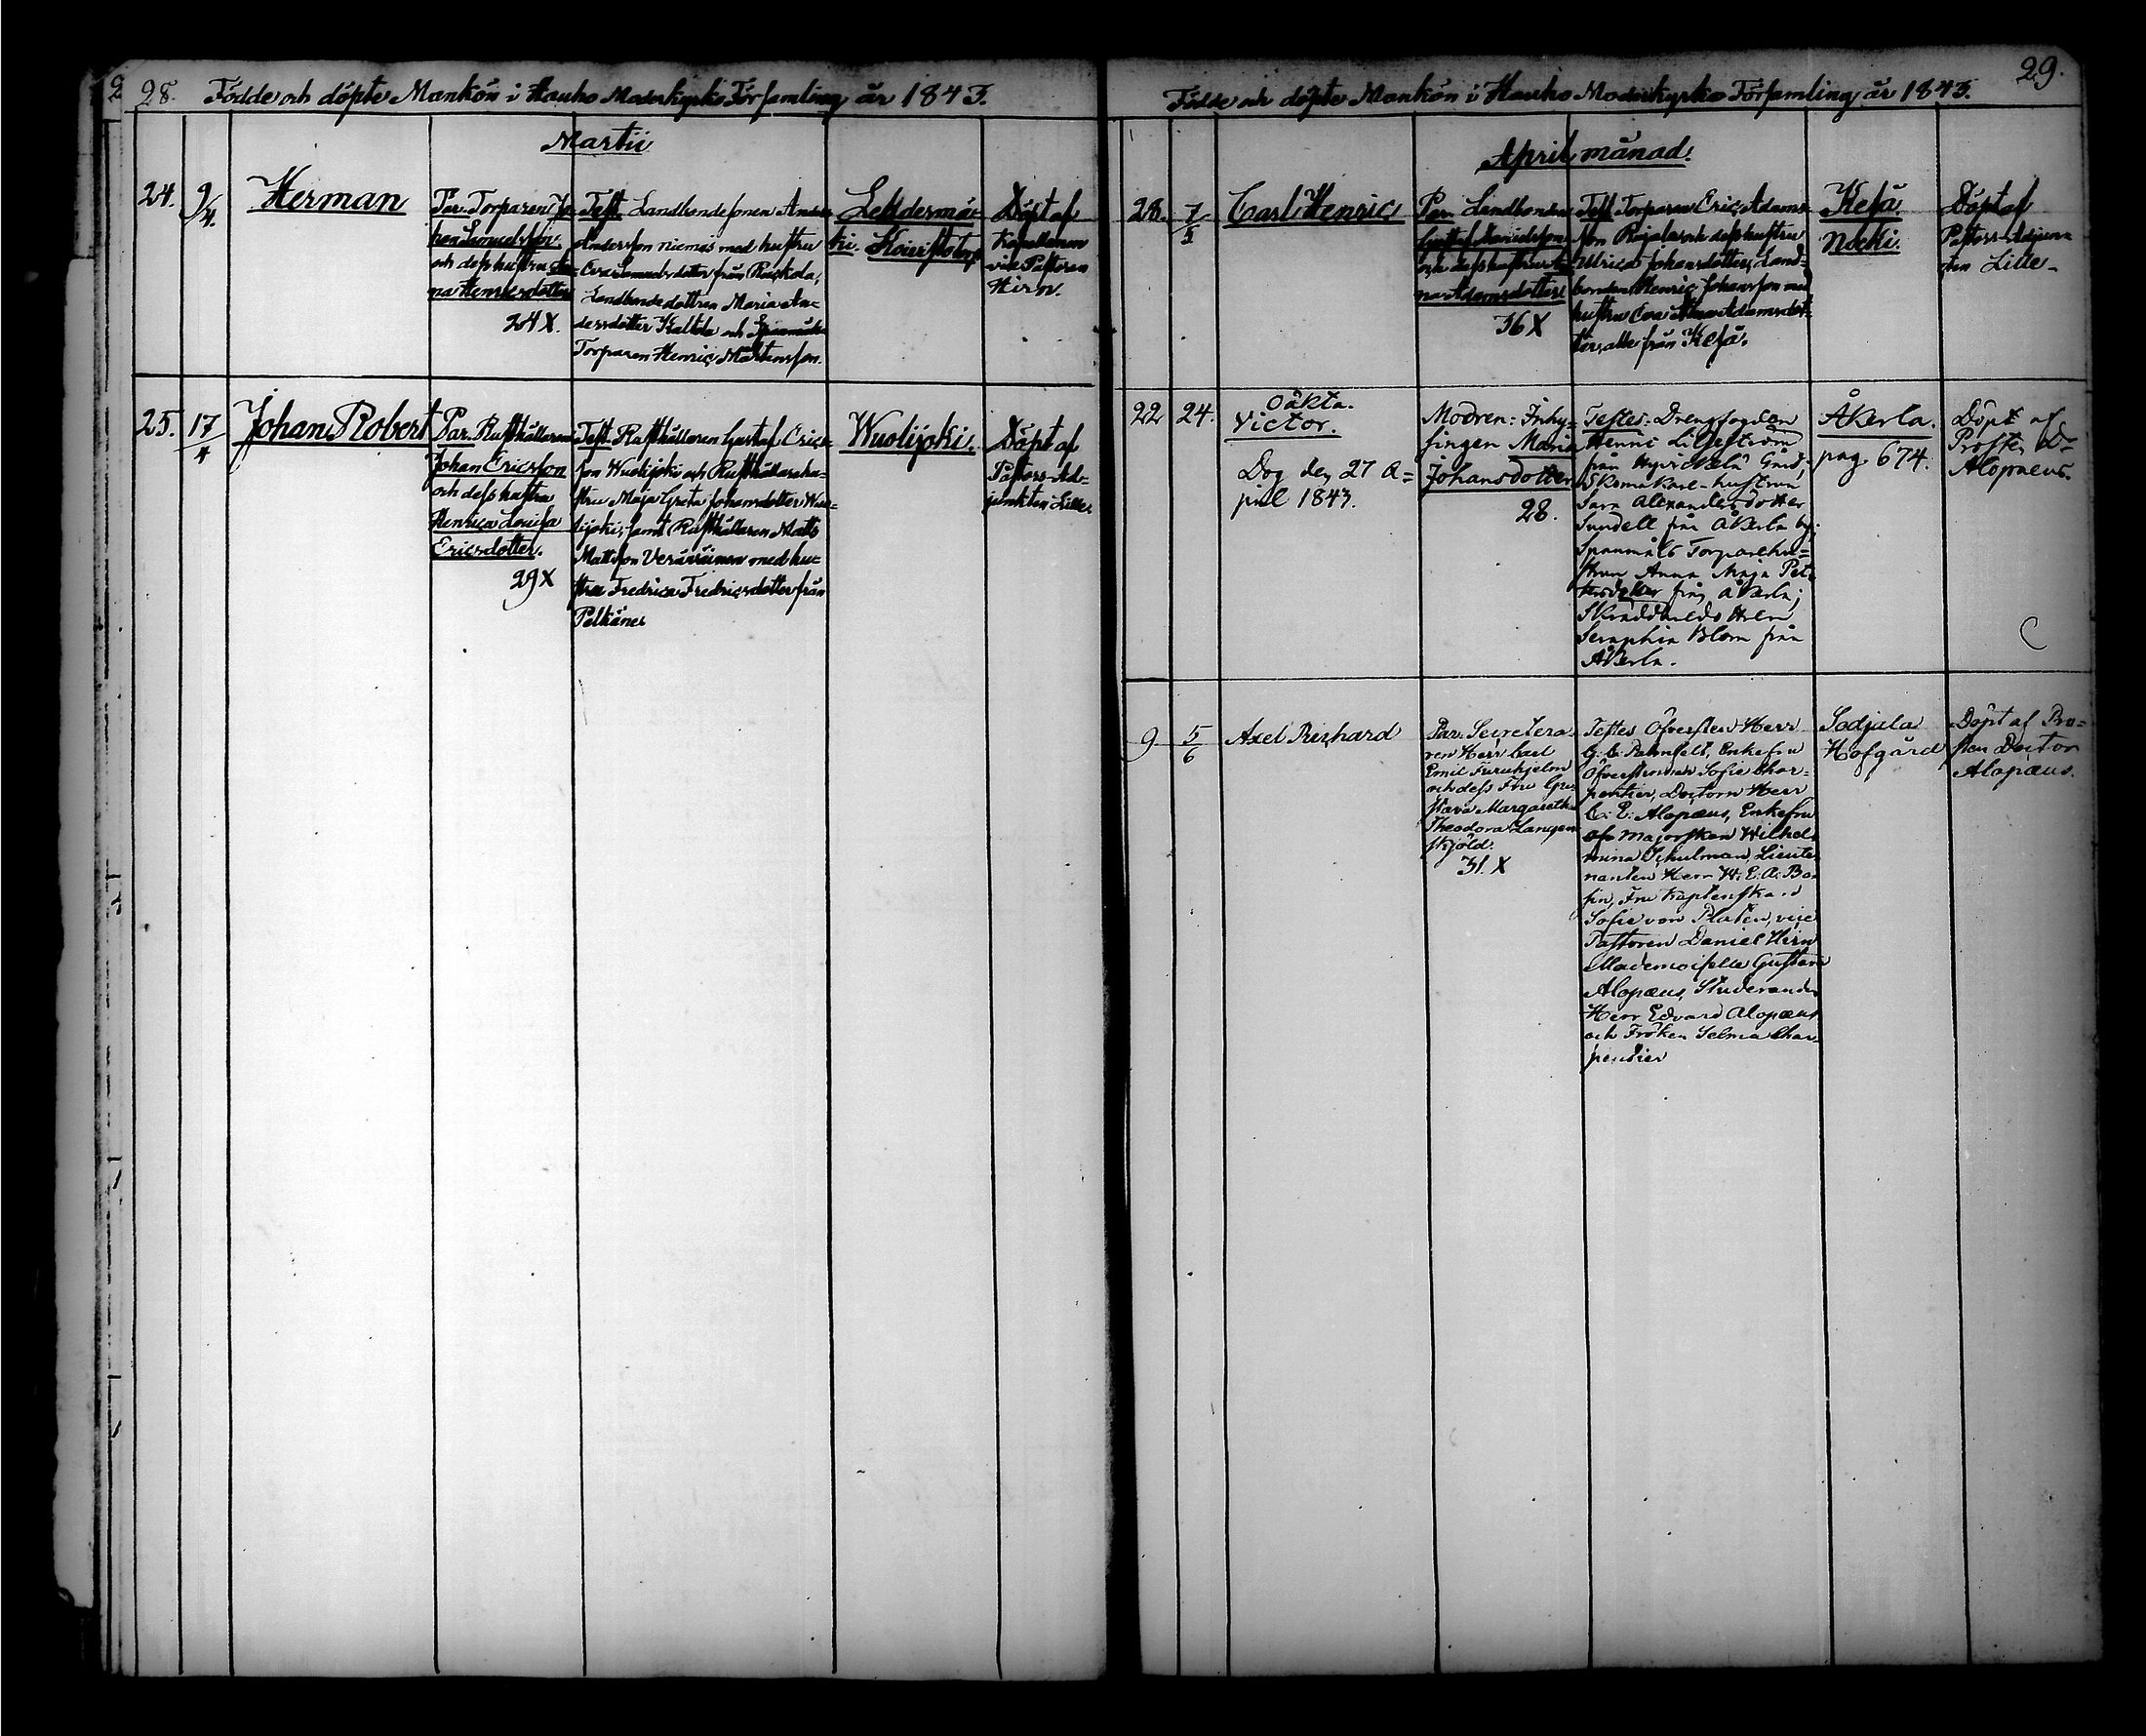 28. Födde och döpte Mankön i Hauho Moderkyrko Församling år 1843.
Martii
24.
9/4.
Herman
Par. Torparen Jo-
han Samuelsson
och dess hustru An-
na Henricsdotter
24 X.
Test. Landbondesonen Anders
Andersson Niemis med hustru
Eva Samuelsdotter från Ruokola,
Landbondedottren Maria An-
dersdotter Kaltila och Spanmåls
Torparen Henric Mårtensson.
Lehdesmä-
ki. Kouistotorp
Döpt af
Kapellanen
vice Pastoren
Hirn.
25.
17/4
Johan Robert
Par. Rusthållaren
Johan Ericsson
och dess hustru
Henrica Lovisa
Ericsdotter.
29 X
Test. Rusthållaren Gustaf Erics-
son Wuolijoki och Rusthållarehu-
stru Maja Greta Johansdotter Wuo-
lijoki, samt Rusthållaren Matts
Mattsson Veräväinen med hu-
stru Fredrica Fredricsdotter från
Pelkäne
Wuolijoki.
Döpt af
Pastors-Ad-
junkten Lille.
29.
Födde och döpte Mankön i Hauho Moderkyrko Församling år 1843.
April månad.
28.
7/5
Carl Henric
Par. Landbonden
Gustaf
och dess hustru An-
na Adamsdotter
36 X
Test. Torparen Eric Adams-
son Rojala och dess hustru
Ulrica Johansdotter, Land-
bonden Henric Johansson med
hustru Eva Adamsdot-
ter, alla från Kesä.
Kesä.
Nocki.
Döpt af
Pastors-Adjun-
ten Lille.
22
24.
Oäkta.
Victor.
Dog den 27 A=
pril 1843.
Modren: Inhy-
singen Maria
Johansdotter
28.
Testes: Drengfogden
Henric Liljeström
från Hyvikkälä Gård,
Skomakare-hustrun
Sara Alexandersdotter
Sundell från Åkerla by;
Spanmåls Torparehu=
strun Anna Maja Pet-
tersdotter från Åkerla;
Skräddaredottren
Seraphia Blom från
Åkerla.
Åkerla.
pag. 674.
Döpt af
Prosten Dr
Alopaeus.
9
5/6
Axel Richard
Par. Secretera-
ren Herr Carl
Emil Furuhjelm
och dess Fru Gu-
stava Margaretha
Theodora Langen-
skjöld.
31. X
Testes Öfversten Herr
G. A. Ramsell, Enkefru
Öfverstinnan Sofie Char-
pentier, Doctorn Herr
C. E. Alopæus, Enkefru
Majorskan Wilhel-
mina Schulman, Lieute-
nanten Herr W. E. A. Bo-
sin, Fru Kaptenskan
Sofie von Platen, vice
Pastoren Daniel Hirn
Mademoiselle Gustava
Alopæus, Studeranden
Herr Edvard Alopæus
och Fröken Selma Char-
pentier
Sodjala
Hofgård
Döpt af Pro-
sten Doctor
Alopæus.